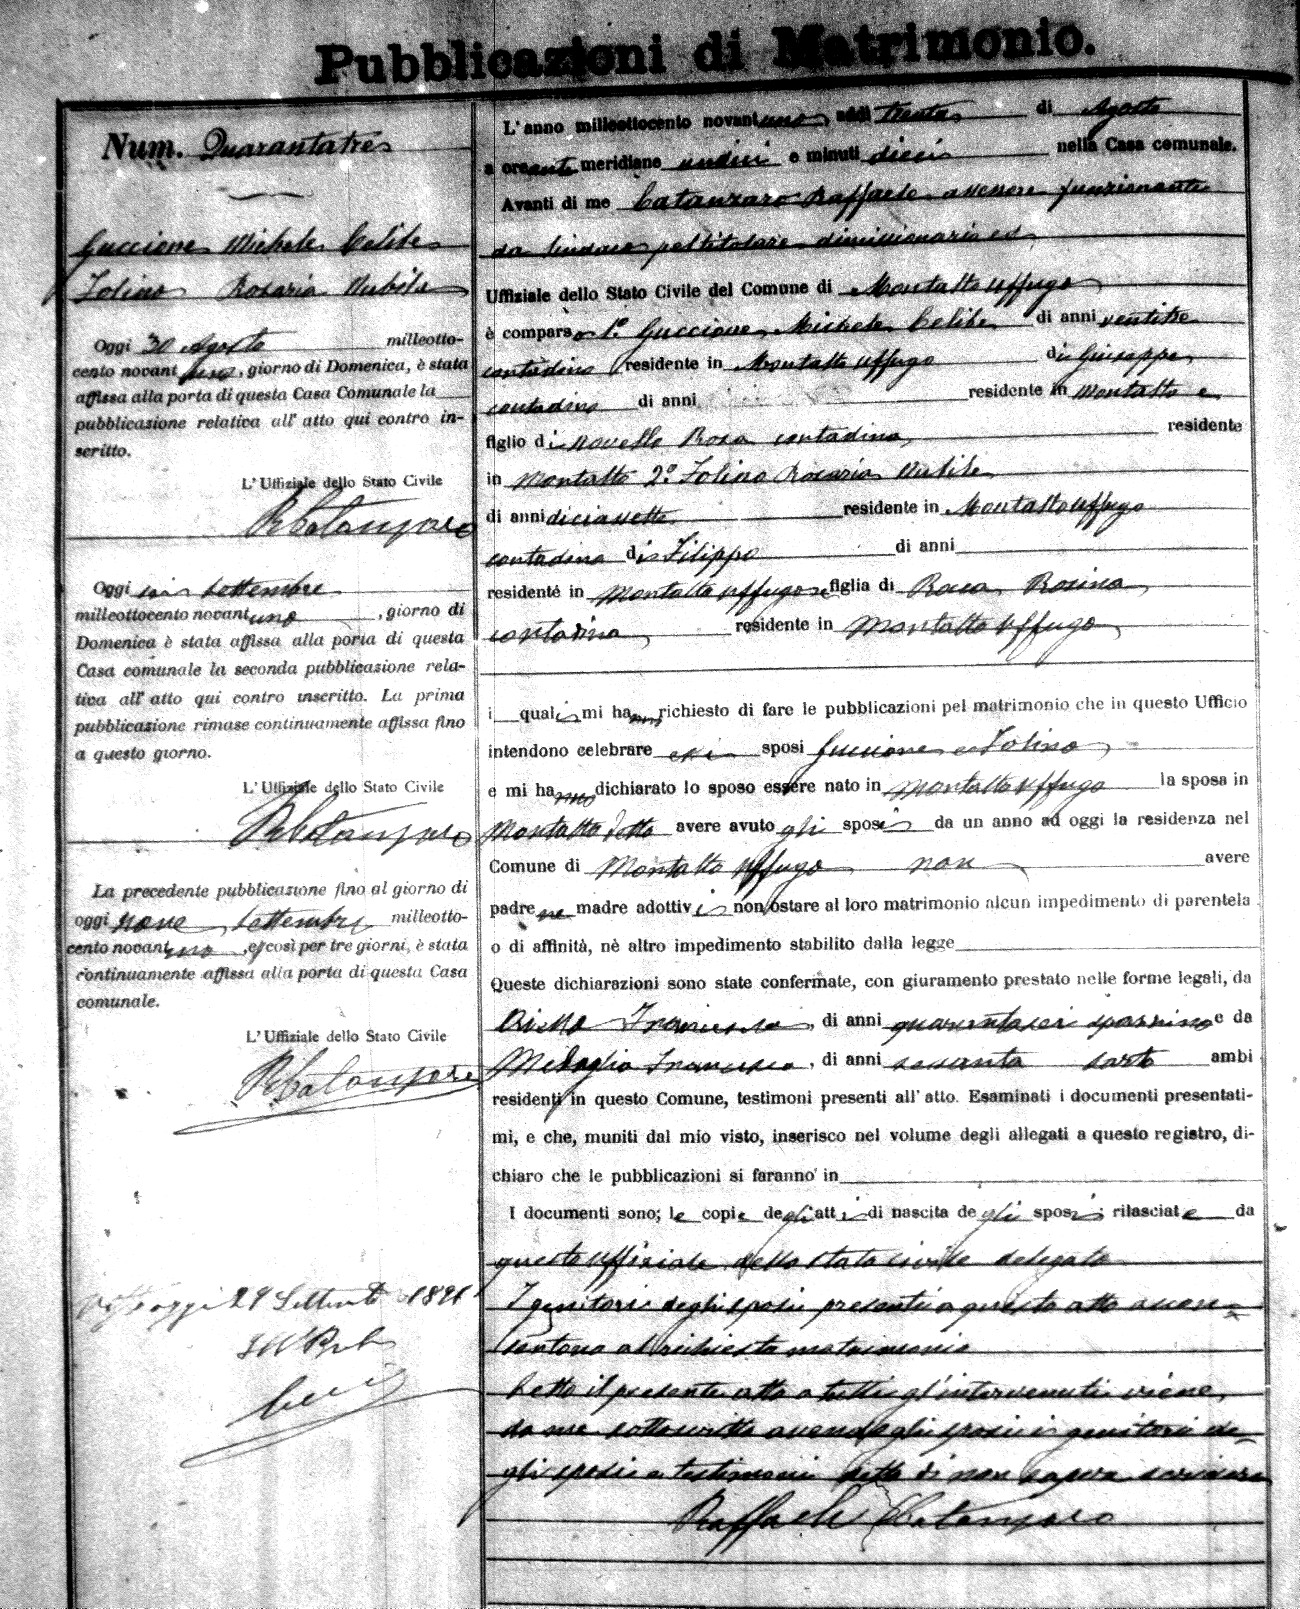 Pubblicazioni di Matrimonio.
Num. Quarantatre
Guccione Michele Celibe
Iolino Rosaria Nubile
Oggi 30 Agosto milleotto-
cento novantuno, giorno di Domenica, è stata
affissa alla porta di questa Casa Comunale la
pubblicazione relativa all' atto qui contro in-
scritto.
L' Uffiziale dello Stato Civile
RCatanzaro
Oggi sei Settembre
milleottocento novantuno, giorno di
Domenica è stata affissa alla porta di questa
Casa comunale la seconda pubblicazione rela-
tiva all' atto qui contro inscritto. La prima
pubblicazione rimase continuamente affissa fino
a questo giorno.
L' Uffiziale dello Stato Civile
RCatanzaro
La precedente pubblicazione fino al giorno di
oggi nove Settembre milleotto-
cento novantuno, e così per tre giorni, è stata
continuamente affissa alla porta di questa Casa
comunale.
L' Uffiziale dello Stato Civile
RCatanzaro
oggi 29 Settembre 1891
L' anno milleottocento novantuno, addì trenta di Agosto
a ore ante meridiane undici e minuti dieci nella Casa comunale.
Avanti di me Catanzaro Raffaele assessore funzionante
da Sindaco pel titolare dimissionario ed
Uffiziale dello Stato Civile del Comune di Montalto Uffugo
è comparso 1º Guccione Michele Celibe di anni ventitre
contadino residente in Montalto Uffugo di Giuseppe
contadino di anni residente in Montalto e
figlio di Novello Rosa contadina, residente
in Montalto 2º Iolino Rosaria Nubile
di anni diciassette residente in Montalto Uffugo
contadina di Filippo di anni
residente in Montalto Uffugo e figlia di Rocca Rosina
contadina residente in Montalto Uffugo
i quali mi hanno richiesto di fare le pubblicazioni pel matrimonio che in questo Ufficio
intendono celebrare essi sposi Guccione e Iolino
e mi hanno dichiarato lo sposo essere nato in Montalto Uffugo la sposa in
Montalto detto avere avuto gli sposi da un anno ad oggi la residenza nel
Comune di Montalto Uffugo non avere
padre ne madre adottivi non ostare al loro matrimonio alcun impedimento di parentela
o di affinità, nè altro impedimento stabilito dalla legge
Queste dichiarazioni sono state confermate, con giuramento prestato nelle forme legali, da
Francesco, di anni quarantasei e da
Medaglia Francesco, di anni sessanta sarto ambi
residenti in questo Comune, testimoni presenti all' atto. Esaminati i documenti presentati-
mi, e che, muniti dal mio visto, inserisco nel volume degli allegati a questo registro, di-
chiaro che le pubblicazioni si faranno in
I documenti sono; le copie degli atti di nascita degli sposi rilasciate da
questo Uffiziale dello stato civile delegato
I genitori degli sposi presenti a questo atto accon-
sentono al richiesto matrimonio
Letto il presente atto a tutti gl'intervenuti viene
da me sottoscritto avendo gli sposi i genitori de-
gli sposi e testimoni detto di non sapere scrivere
Raffaele Catanzaro